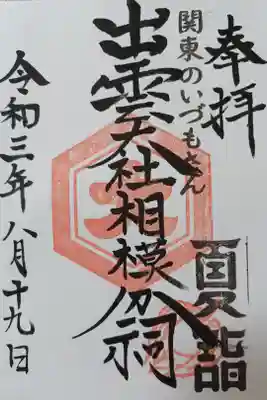 奉拝
夏詣
関東のいづもさん
出雲大社相模分祠
令和三年八月十九日